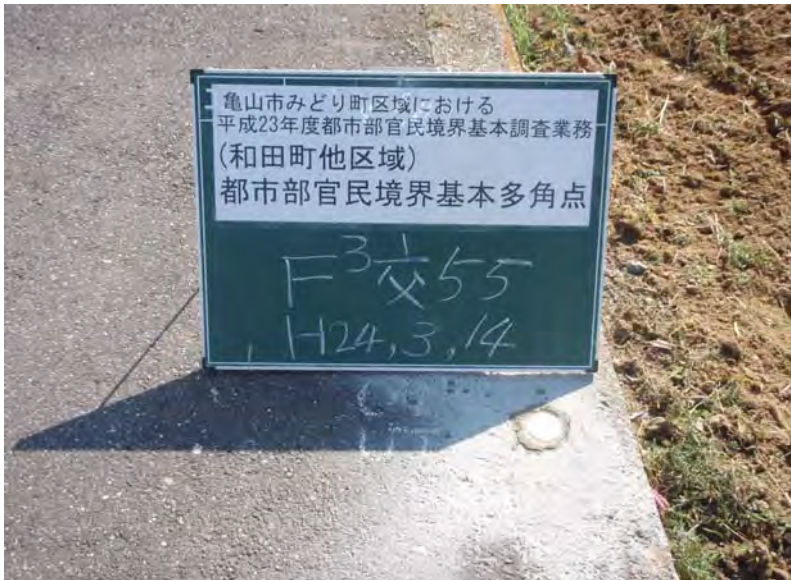 亀山市みどり町区域における
平成23年度都市部官民境界基本調査業務
(和田町他区域)
都市部官民境界基本多角点
F3交55
H24,3,14